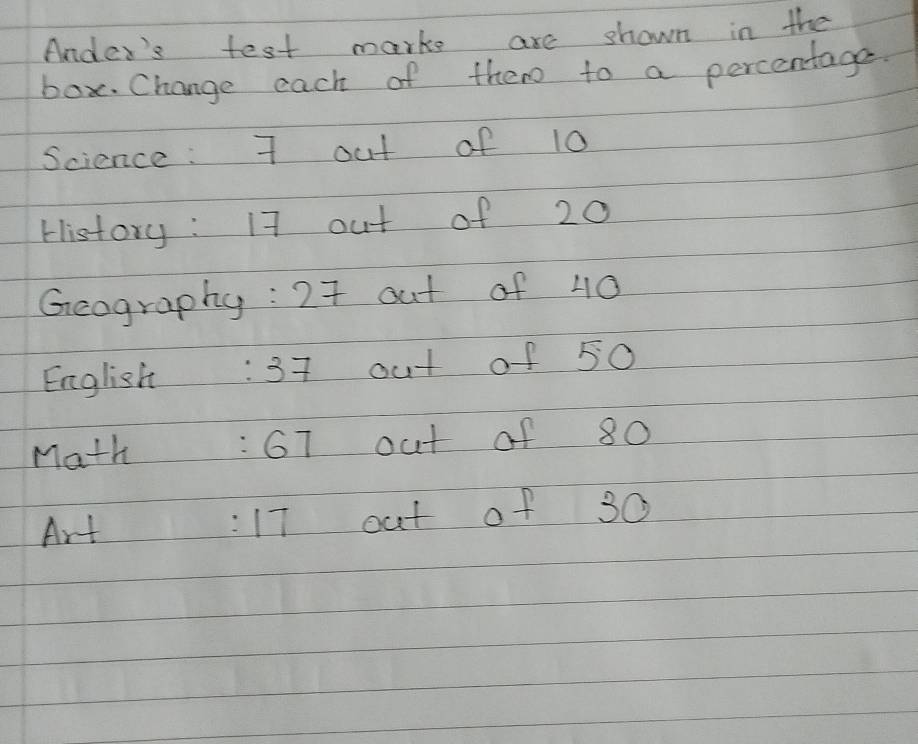 Ander's test marks are shown in the
box. Change each of them to a percentage.
Science : 7 out of 10
History : 17 out of 20
Geography : 27 out of 40
English : 37 out of 50
Math : 67 out of 80
Art : 17 out of 30